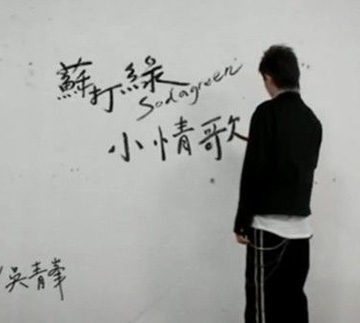 蘇打綠
Sodagreen
小情歌
吳青峯